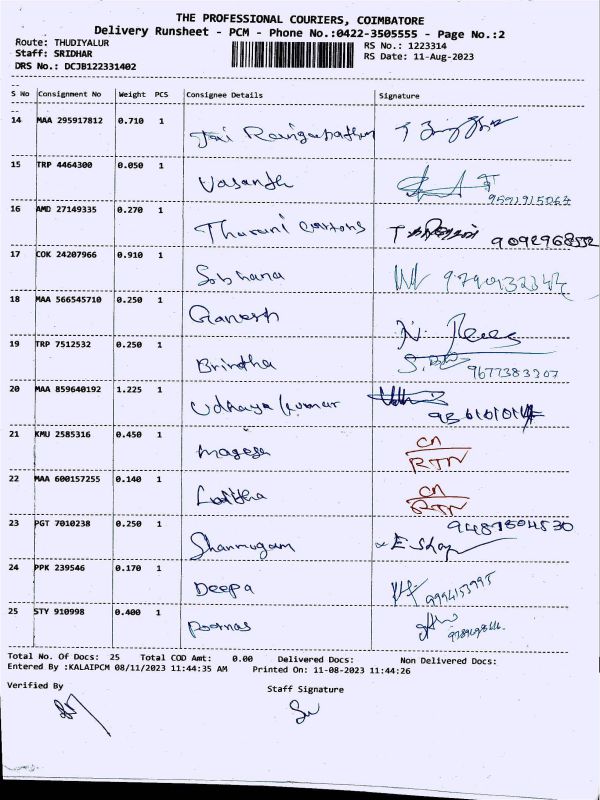 THE PROFESSIONAL COURIERS, COIMBATORE
Delivery Runsheet - PCM - Phone No.:0422-3505555 - Page No.:2
Route: THUDIYALUR RS No.: 1223314
Staff: SRIDHAR RS Date: 11-Aug-2023
DRS No.: DCJB122331402
S No Consignment No Weight PCS Consignee Details Signature
14 MAA 295917812 0.710 1 Jai Ranganathan
15 TRP 4464300 0.050 1 Vasanth
16 AMD 27149335 0.270 1 Tharani Cartons
17 COK 24207966 0.910 1 Sobhana
18 MAA 566545710 0.250 1 Ganesh
19 TRP 7512532 0.250 1 Brindha 9677383307
20 MAA 859640192 1.225 1 Udhaya kumar
21 KMU 2585316 0.450 1 Magesh CN
RTN
22 MAA 600157255 0.140 1 Lalitha CN
RTN
23 PGT 7010238 0.250 1 Shanmugam 9487504530
24 PPK 239546 0.170 1 Deepa
25 STY 910998 0.400 1
Total No. Of Docs: 25 Total COD Amt: 0.00 Delivered Docs: Non Delivered Docs:
Entered By :KALAIPCM 08/11/2023 11:44:35 AM Printed On: 11-08-2023 11:44:26
Verified By Staff Signature